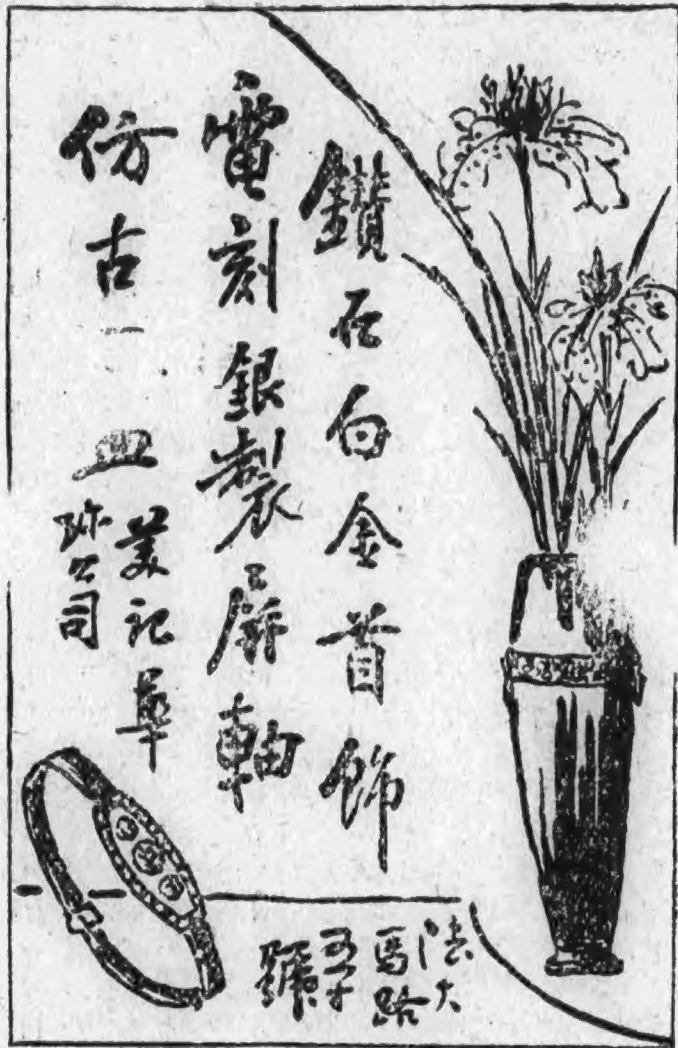 鑽石白金首飾
電刻銀製屏軸
仿古
美記華
珎公司
法大
馬路
五十
號